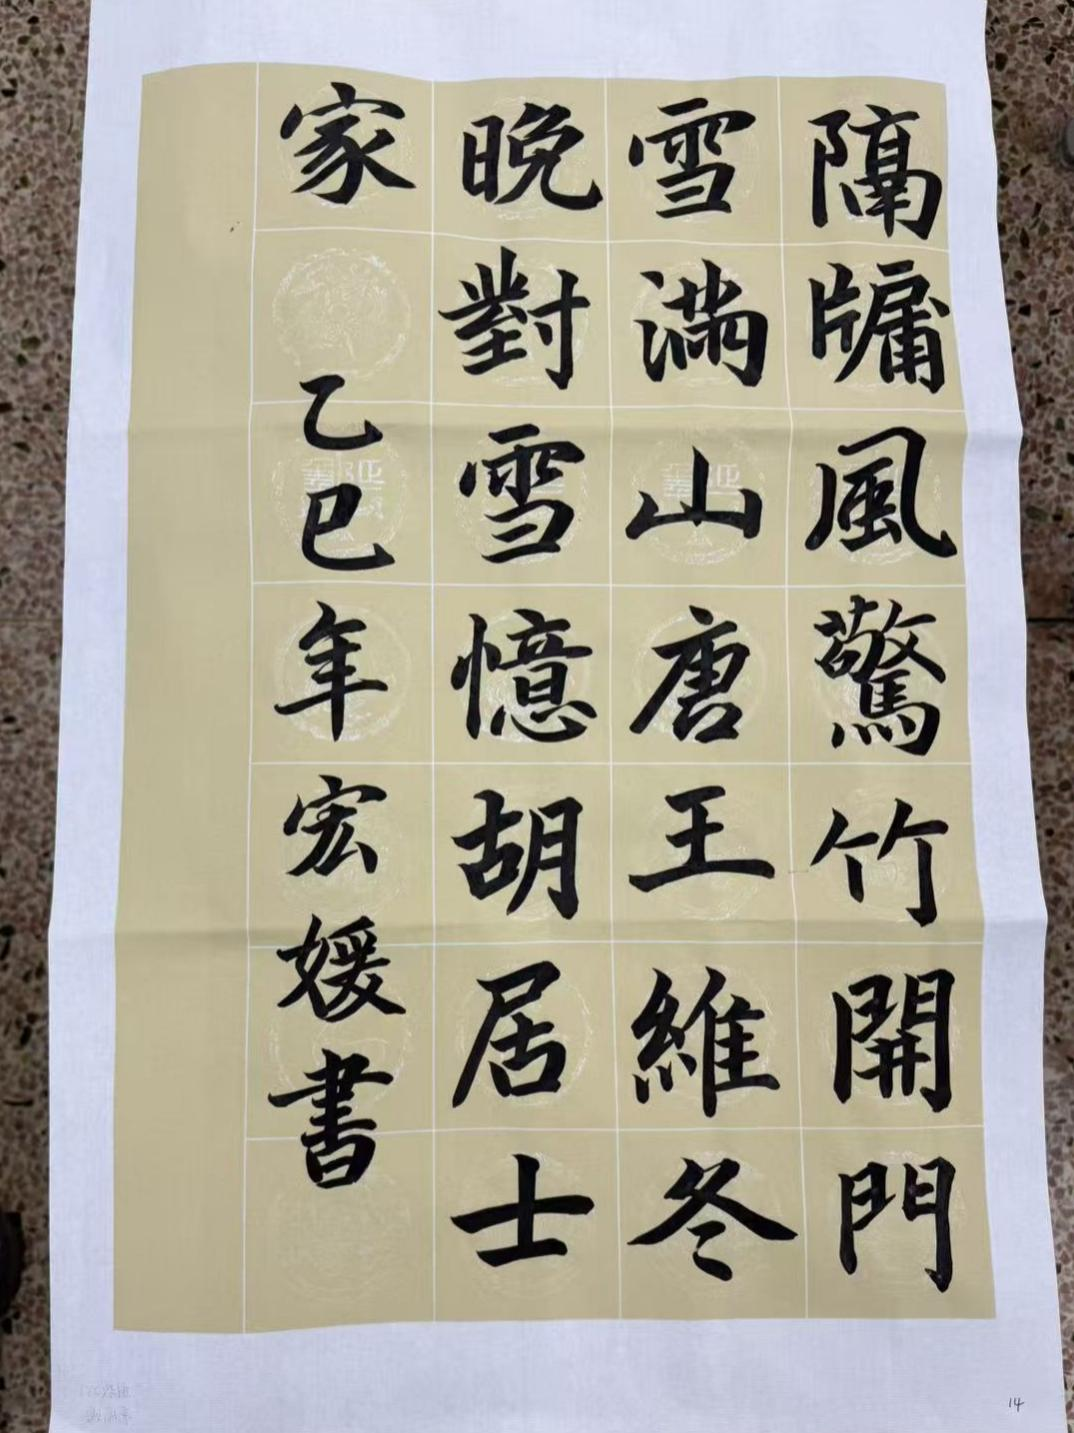 隔牖風驚竹開門
雪滿山唐王維冬
晚對雪憶胡居士
家
乙巳年宏媛書
14